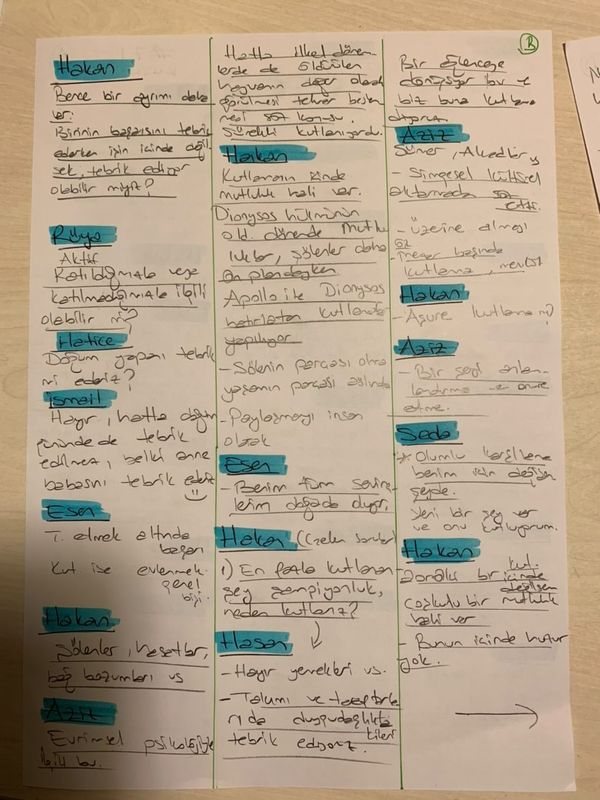 Hakan
Bence bir ayrımı daha
var.
Birinin başarısını tebrik
ederken işin içinde değil
sek, tebrik ediyor
olabilir miyiz?
Rüya
Aktif
Katıldığımızla veya
katılmadığımızla ilgili
olabilir mi?
Hatice
Doğum yapanı tebrik
mi ederiz?
ismail
Hayır, hatta doğum
gününde de tebrik
edilmez, belki anne
babasını tebrik ederiz
Esen
T. etmek altında
başarı
Kut ise evlenmek
genel
bişi.
Hakan
Şölenler, hasatlar,
bağ bozumları vs
Aziz
Evrimsel psikolojiyle
ilgili bu.
Hatta ilkel dönem
lerde de öldürülen
hayvanın değer olarak
görülmesi tekrar beslen
mesi söz konusu.
Sürekli kutlanıyordu.
Hakan
Kutlamanın içinde
mutluluk hali var.
Dionysos hükmünün
old. dönemde mutlu
luklar, şölenler daha
ön plandayken
Apollo ile Dionysos
hatırlatan kutlamalar
yapılıyor
- Şölenin parçası olma
yaşamın parçası aslında
- Paylaşmayı insan
olarak
Esen
- Benim tüm sevinç
lerim doğada duyar,
Hakan (Özden sorular)
1) En fazla kutlanan
şey şampiyonluk,
neden kutlanır?
Hasan
- Hayır yemekleri vs.
- Takımı ve taraftarla
rı da duygudaşlıkta
kileri
tebrik ediyoruz.
R
Bir eğlenceye
dönüşüyor bu ve
biz buna kutlama
diyoruz
Aziz
Sümer, Akad
- Simgesel kültürel
aktarmada söz
- üzerine almayı
söz
mezar başında
kutlama, mevlüt
Hakan
- Aşure kutlama mı?
Aziz
- Bir şeyi anlam
landırma ve onure
etme.
Seda
* Olumlu karşılama
benim için değişen
şeyde.
Yeni bir şey var
ve onu kutluyorum.
Hakan
kut.
içinde
Coşkulu bir mutluluk
hali var
- Bunun içinde huzur
yok.